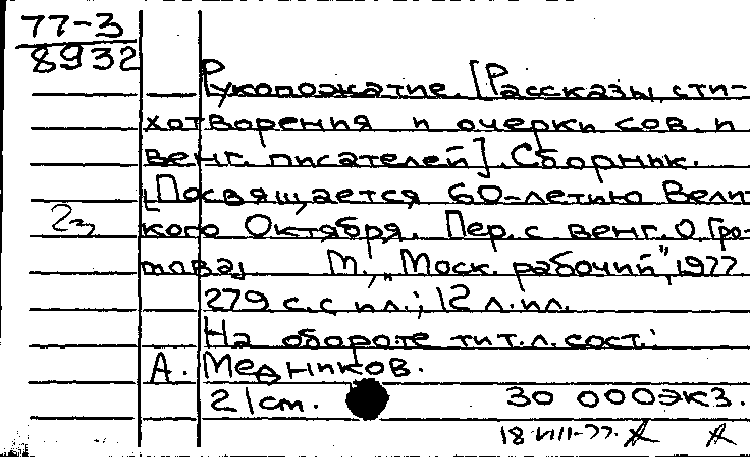 77-3
8932
Рукопожатие. [Рассказы, сти-
хотворения и очерки сов. и
венг. писателей]. Сборник.
[Посвящается 60-летию Вели-
кого Октября. Пер. с венг. О. Гро-
мова]. М., „Моск. рабочий", 1977
279 с. с ил.; 12 л. ил.
На обороте тит. л. сост.:
А. Медников.
21 см. 30 000 экз.
18 VIII-77.